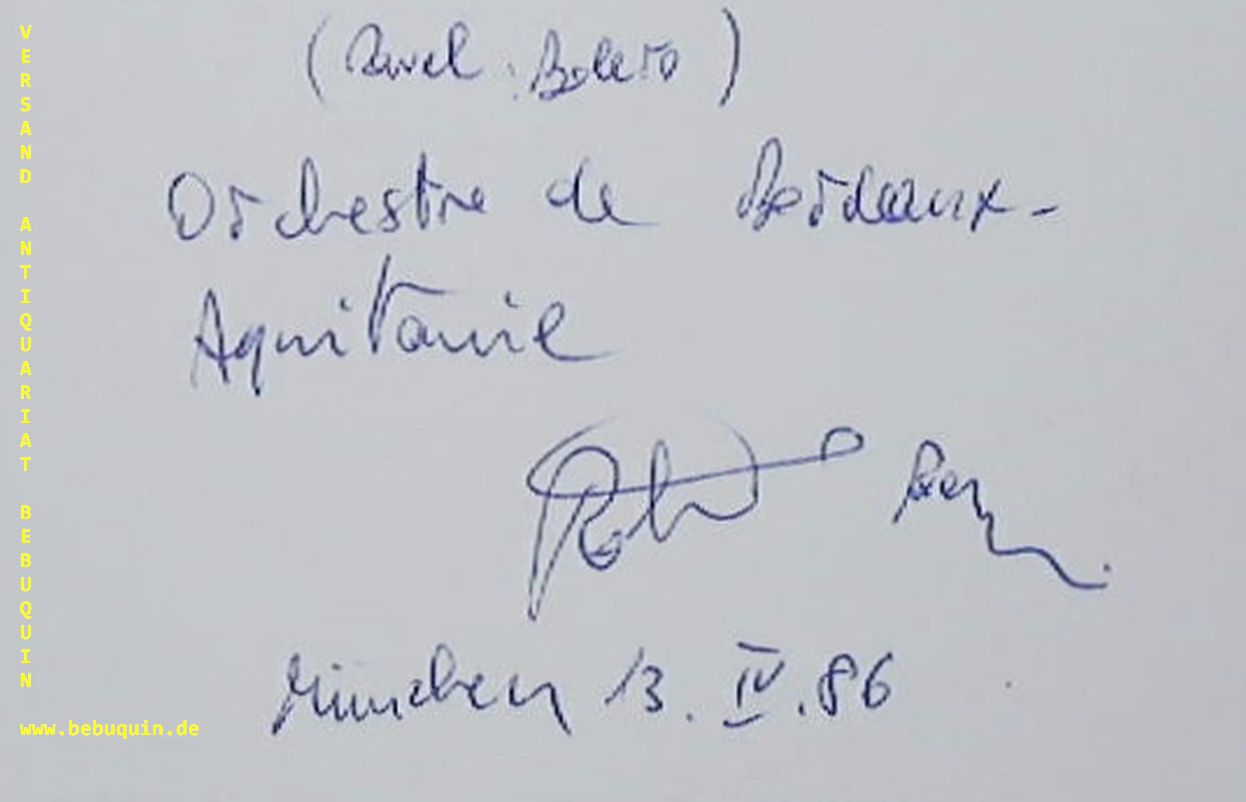 (Ravel: Bolero)
Orchestre de Bordeaux-
Aquitanie
München 13. IV. 86
VERSAND ANTIQUARIAT BEBUQUIN
www.bebuquin.de